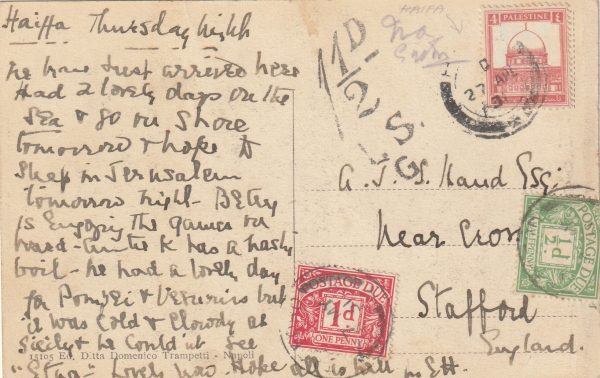 Haiffa Thursday night
We have just arrived here
Had a lovely days on the
Sea & go on shore
tomorrow & hope to
sleep in Jerusalem
tomorrow night - Betty
is Enjoying the games on
board - Auntie K has a nasty
boil - we had a lovely day
for Pompei & Vesuvius but
it was cold & cloudy at
Sicily & we could not see
"Etna" Love hope all is well
15105 Ed. D.tta Domenico Trampetti - Napoli
HAIFA
1½D
SG
PALESTINE
4 4
27 APR
A. J. S. Hand Esq:
Near
Stafford
England.
POSTAGE DUE
½D
POSTAGE DUE
1D
ONE PENNY